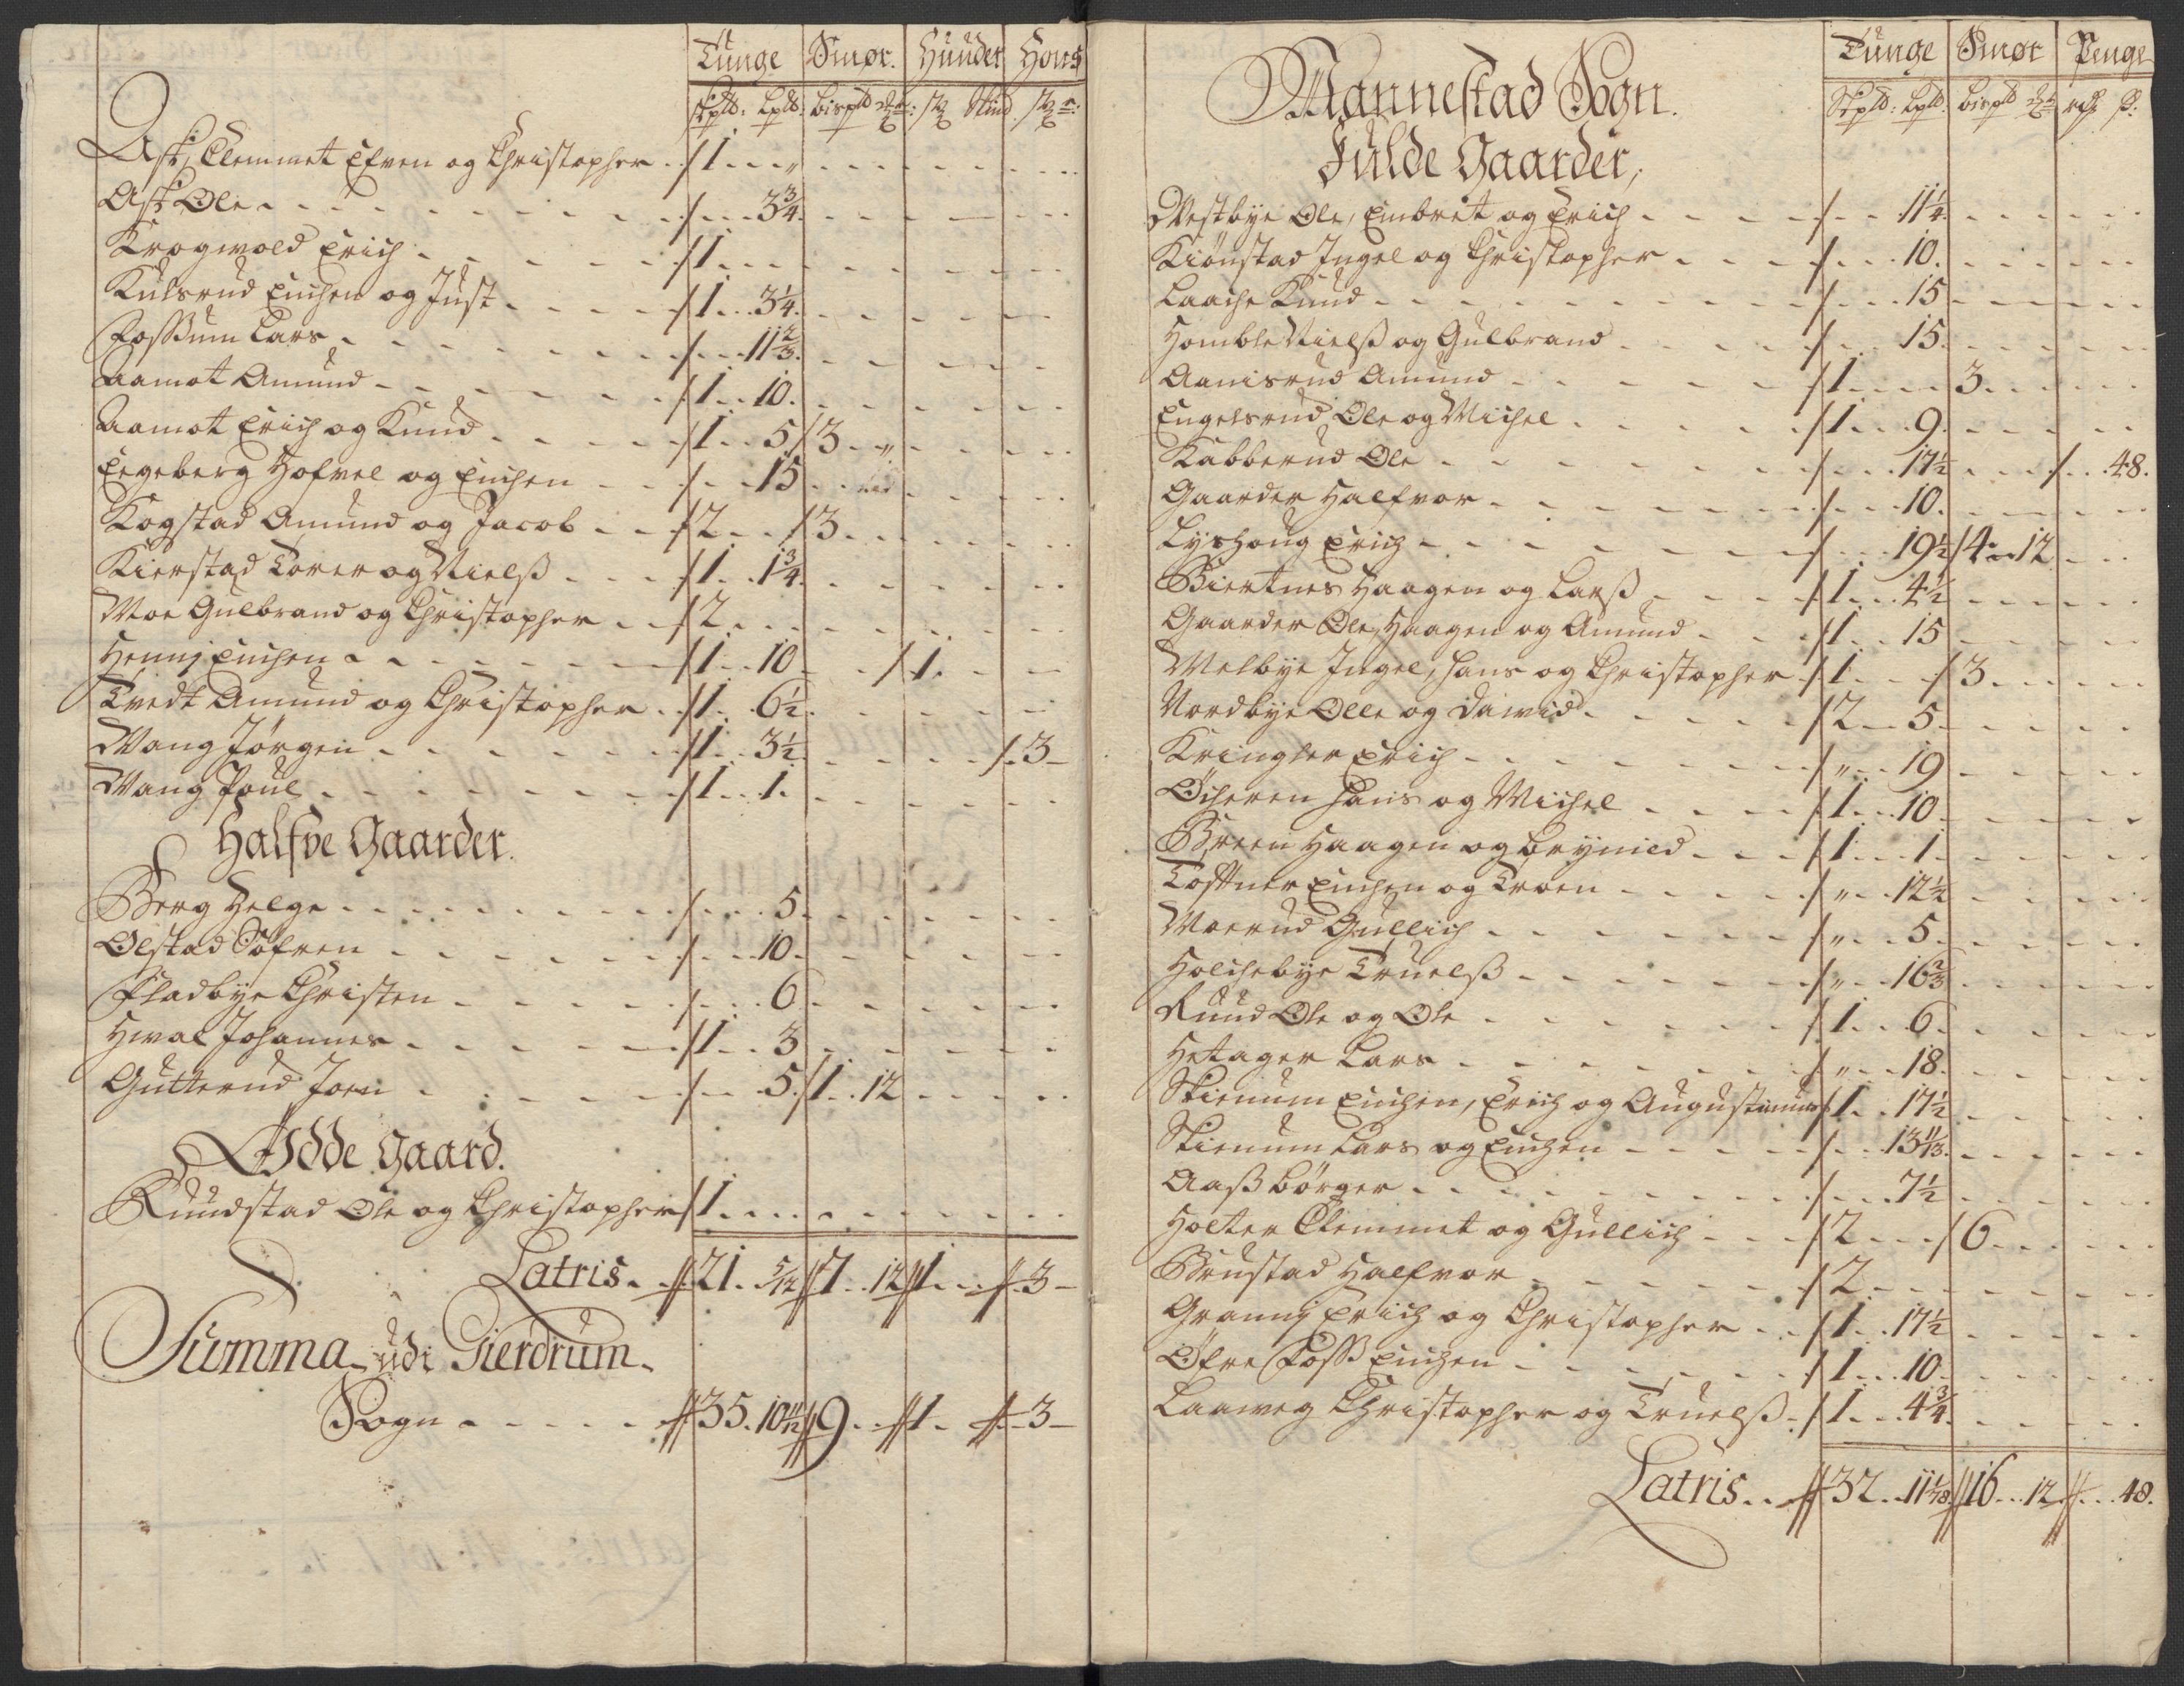 Tunge Smør. Huuder Hors
Skpld: Lpld: bispld
Ask, Clemmet Efven og Christopher . . /1 . . „
Ask Ole . . . /. . . 3 3/4.
Krogwold Erich . . . /1 . . .
Kulsrud Einchen og Just . . . /1 . . 3 1/4.
Fossum Lars . . . /. . . 11 2/3.
Aamot Amund . . . /1 . . 10.
Aamot Erich og Knud . . . /1 . . 5 /3 . . „
Eegeberg Hofvel og Einchen . . . /. . . 15
Kogstad Amund og Jacob . . . /2 . . . /3 . . .
Kierstad Torer og Nielß . . . /1 . . 1 3/4.
Moe Gulbrand og Christopher . . . /2 . . .
Henni Einchen . . . /1 . . 10 . . . /1 . . .
Tvedt Amund og Christopher . . /1 . . 6 1/2
Wang Jørgen . . . /1 . . 3 1/2 . . . /. 3 –
Wang Poul . . . /1 . . 1.
Halfve Gaarder.
Berg Helge . . . /. . . 5.
Olstad Søfren . . . /. . . 10.
Fladbye Christen . . . /. . . 6
Hwal Johannes . . . /1 . . 3
Gutterud Joen . . . /. . . 5. /1 . . 12
Ødde Gaard.
Ruudstad Ole og Christopher /1 . . .
Latris . . //21 . . 5/12 //7 . . 12 //1 . . //. 3 –
Summa udi Gierdrum
Sogn . . . //35. 10 11/12 //9 . . //1 . //. 3 –
Tunge Smør Penge
Skpld: Lpld: bispld
Mannestad Sogn.
Fulde Gaarder,
Westbye Ole, Embret og Erich . . . /. . . 11 1/4.
Kiønstad Ingel og Christopher . . . /. . . 10.
Laache Knud . . . /. . . 15
Homble Nielß og Gulbrand . . . /. . . 15.
Aanisrud Amund . . . /1 . . . 3 . . .
Engelsrud Ole og Michel . . . /1 . . 9.
Kabberud Ole . . . /. . . 17 1/2 . . . /. . 48.
Gaarder Halfvor . . . /. . . 10.
Lyshoug Erich . . . /. . . 19 1/2 /4 . . 12
Biertnes Haagen og Larß . . . /1 . . 4 1/2
Gaarder Ole, Haagen og Amund . . . /1 . . 15
Melbye Ingel, Hans og Christopher . /1 . . . /3 . . .
Nordbye Olle og Dawid . . . /2 . . 5.
Kringler Erich . . . /„ . . 19
Ocheren Hans og Michel . . . /1 . . 10
Breen Haagen og Brynild . . . /1 . . 1.
Tosttner Einchen og Troen . . . /„ . . 12 1/2
Moerud Gullich . . . /„ . . 5.
Holchebye Truelß . . . /„ . . 16 2/3
Ruud Ole og Ole . . . /1 . . 6.
Hetager Lars . . . /„ . . 18.
Skienum Einchen, Erich og Augustinus /1 . . 17 1/2
Skienum Lars og Einchen . . . /. . . 13 1/3.
Aaß Børger . . . /. . . 7 1/2
Holter Clemmet og Gullich . . . /2 . . . /6 . . .
Brustad Halfvor . . . /2 . . .
Granni Erich og Christopher . . . /1 . . 17 1/2
Øfre Foss Einchen . . . /1 . . 10.
Laaweg Christopher og Truelß . /1 . . 4 3/4.
Latris . . //32 . . 11 //16 . . 12 //. . . 48.